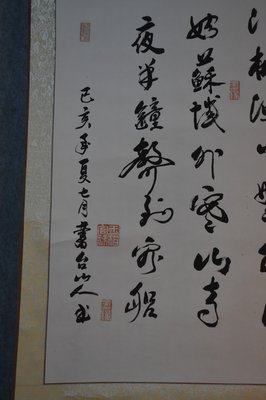 江楓漁火對愁
姑蘇城外寒山寺
夜半鐘聲到客船
己亥年夏七月書台山人